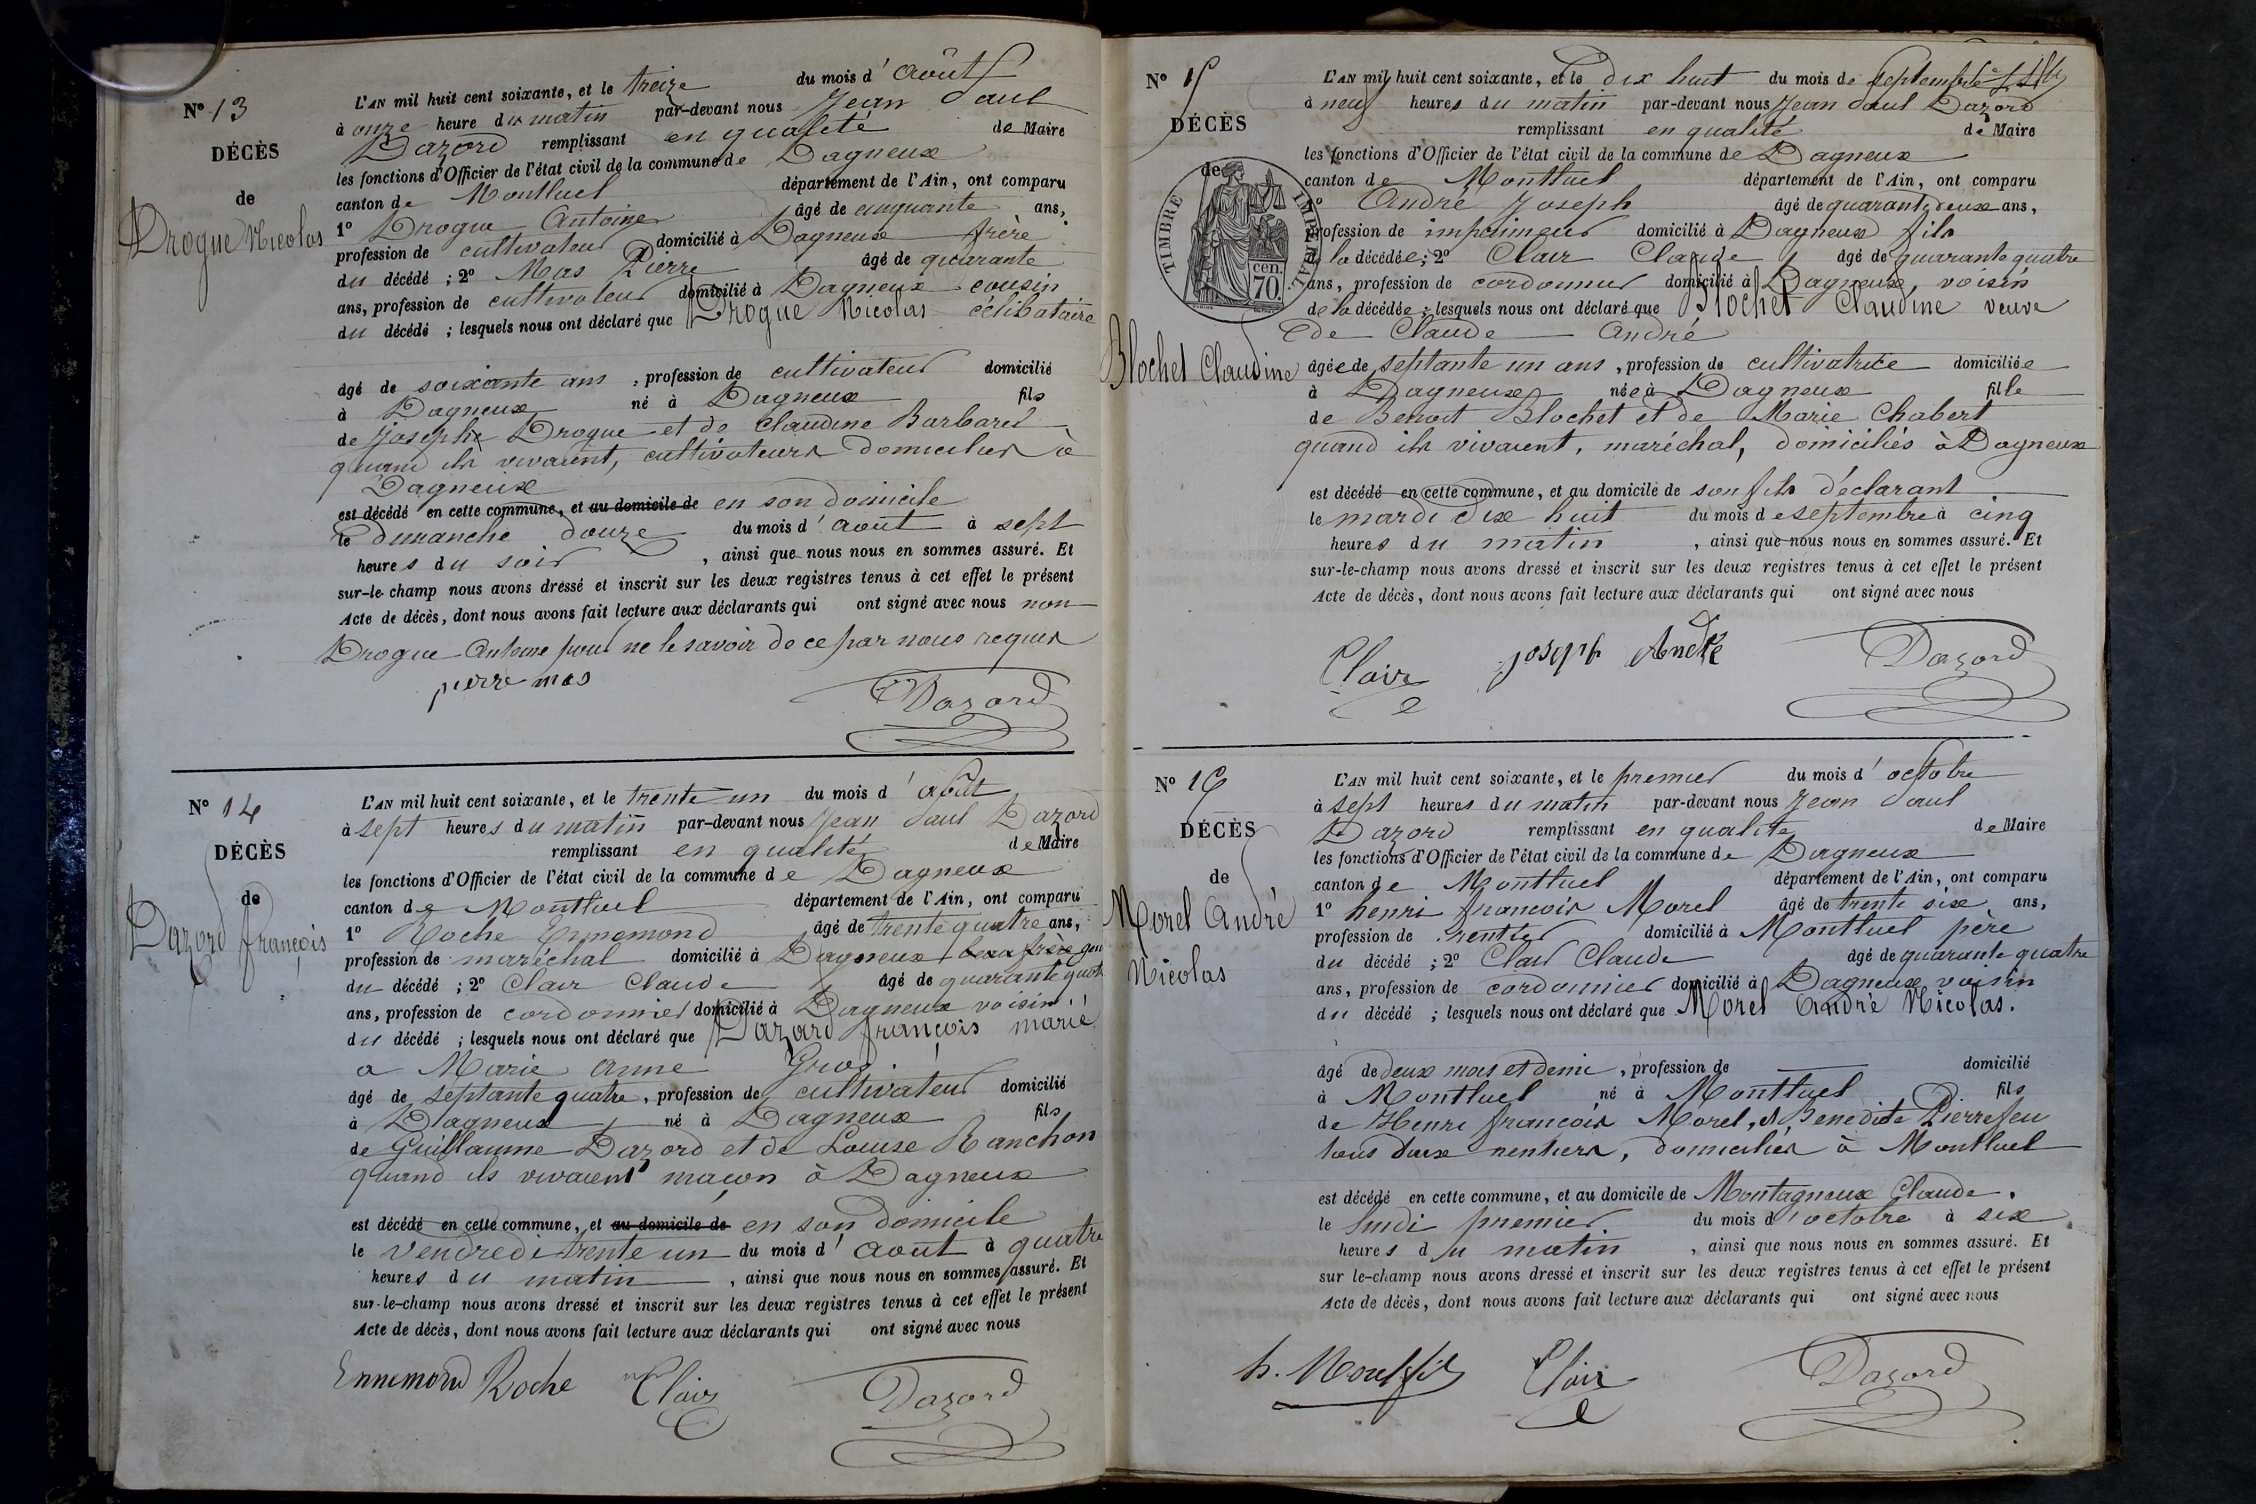 N° 13
DÉCÈS
de
Drogue Nicolas
L'AN mil huit cent soixante, et le treize du mois d' août
à onze heure du matin par-devant nous Jean Paul
Dazord remplissant en qualité de Maire
les fonctions d'Officier de l'état civil de la commune de Dagneux
canton de Montluel département de l'Ain, ont comparu
1° Drogue Antoine âgé de cinquante ans,
profession de cultivateur domicilié à Dagneux frère
du décédé ; 2° Mas Pierre âgé de quarante
ans, profession de cultivateur domicilié à Dagneux cousin
du décédé ; lesquels nous ont déclaré que Drogue Nicolas célibataire
âgé de soixante ans , profession de cultivateur domicilié
à Dagneux né à Dagneux fils
de Joseph Drogue et de Claudine Barbaret
quand ils vivaient, cultivateurs domiciliés à
Dagneux
est décédé en cette commune, et au domicile de en son domicile
le dimanche douze du mois d' août à sept
heures du soir , ainsi que nous nous en sommes assuré. Et
sur-le-champ nous avons dressé et inscrit sur les deux registres tenus à cet effet le présent
Acte de décès, dont nous avons fait lecture aux déclarants qui ont signé avec nous non
Drogue Antoine pour ne le savoir de ce par nous requis
pierre mas
Dazord
N° 14
DÉCÈS
de
Dazord françois
L'AN mil huit cent soixante, et le trente un du mois d' août
à sept heures du matin par-devant nous Jean Paul Dazord
remplissant en qualité de Maire
les fonctions d'Officier de l'état civil de la commune de Dagneux
canton de Montluel département de l'Ain, ont comparu
1° Roche Ennemond âgé de trente quatre ans,
profession de maréchal domicilié à Dagneux beau frère gen
du décédé ; 2° Clair Claude âgé de quarante quat
ans, profession de cordonnier domicilié à Dagneux voisin
du décédé ; lesquels nous ont déclaré que Dazard françois marié
a Marie Anne Gros
âgé de septante quatre , profession de cultivateur domicilié
à Dagneux né à Dagneux fils
de Guillaume Dazord et de Louise Ranchon
quand ils vivaient maçon à Dagneux
est décédé en cette commune, et au domicile de en son domicile
le vendredi trente un du mois d' août à quatre
heures du matin , ainsi que nous nous en sommes assuré. Et
sur-le-champ nous avons dressé et inscrit sur les deux registres tenus à cet effet le présent
Acte de décès, dont nous avons fait lecture aux déclarants qui ont signé avec nous
Ennemond Roche Clair Dazord
N° 15
DÉCÈS
de
TIMBRE IMPERIAL
cen. 70
Blochet Claudine
L'AN mil huit cent soixante, et le dix huit du mois de septembre
à neuf heures du matin par-devant nous Jean Paul Dazord
remplissant en qualité de Maire
les fonctions d'Officier de l'état civil de la commune de Dagneux
canton de Montluel département de l'Ain, ont comparu
1° André Joseph âgé de quarante deux ans,
profession de imprimeur domicilié à Dagneux fils
de la décédée ; 2° Clair Claude âgé de quarante quatre
ans, profession de cordonnier domicilié à Dagneux, voisin
de la décédée ; lesquels nous ont déclaré que Blochet Claudine veuve
de Claude André
âgée de septante un ans , profession de cultivatrice domiciliée
à Dagneux née à Dagneux fille
de Benoit Blochet et de Marie Chabert
quand ils vivaient, maréchal, domiciliés à Dagneux
est décédé en cette commune, et au domicile de son fils déclarant
le mardi dix huit du mois de septembre à cinq
heures du matin , ainsi que nous nous en sommes assuré. Et
sur-le-champ nous avons dressé et inscrit sur les deux registres tenus à cet effet le présent
Acte de décès, dont nous avons fait lecture aux déclarants qui ont signé avec nous
Clair joseph André Dazord
N° 16
DÉCÈS
de
Morel André
Nicolas
L'AN mil huit cent soixante, et le premier du mois d' octobre
à sept heures du matin par-devant nous Jean Paul
Dazord remplissant en qualité de Maire
les fonctions d'Officier de l'état civil de la commune de Dagneux
canton de Montluel département de l'Ain, ont comparu
1° henri françois Morel âgé de trente six ans,
profession de rentier domicilié à Montluel père
du décédé ; 2° Clair Claude âgé de quarante quatre
ans, profession de cordonnier domicilié à Dagneux voisin
du décédé ; lesquels nous ont déclaré que Morel André Nicolas.
âgé de deux mois et demi , profession de domicilié
à Montluel né à Montluel fils
de Henri françois Morel, et Benedicte Pierrefeu
tous deux rentiers, domiciliés à Montluel
est décédé en cette commune, et au domicile de Montagneux Claude.
le lundi premier du mois d' octobre à six
heures du matin , ainsi que nous nous en sommes assuré. Et
sur le-champ nous avons dressé et inscrit sur les deux registres tenus à cet effet le présent
Acte de décès, dont nous avons fait lecture aux déclarants qui ont signé avec nous
Clair Dazord